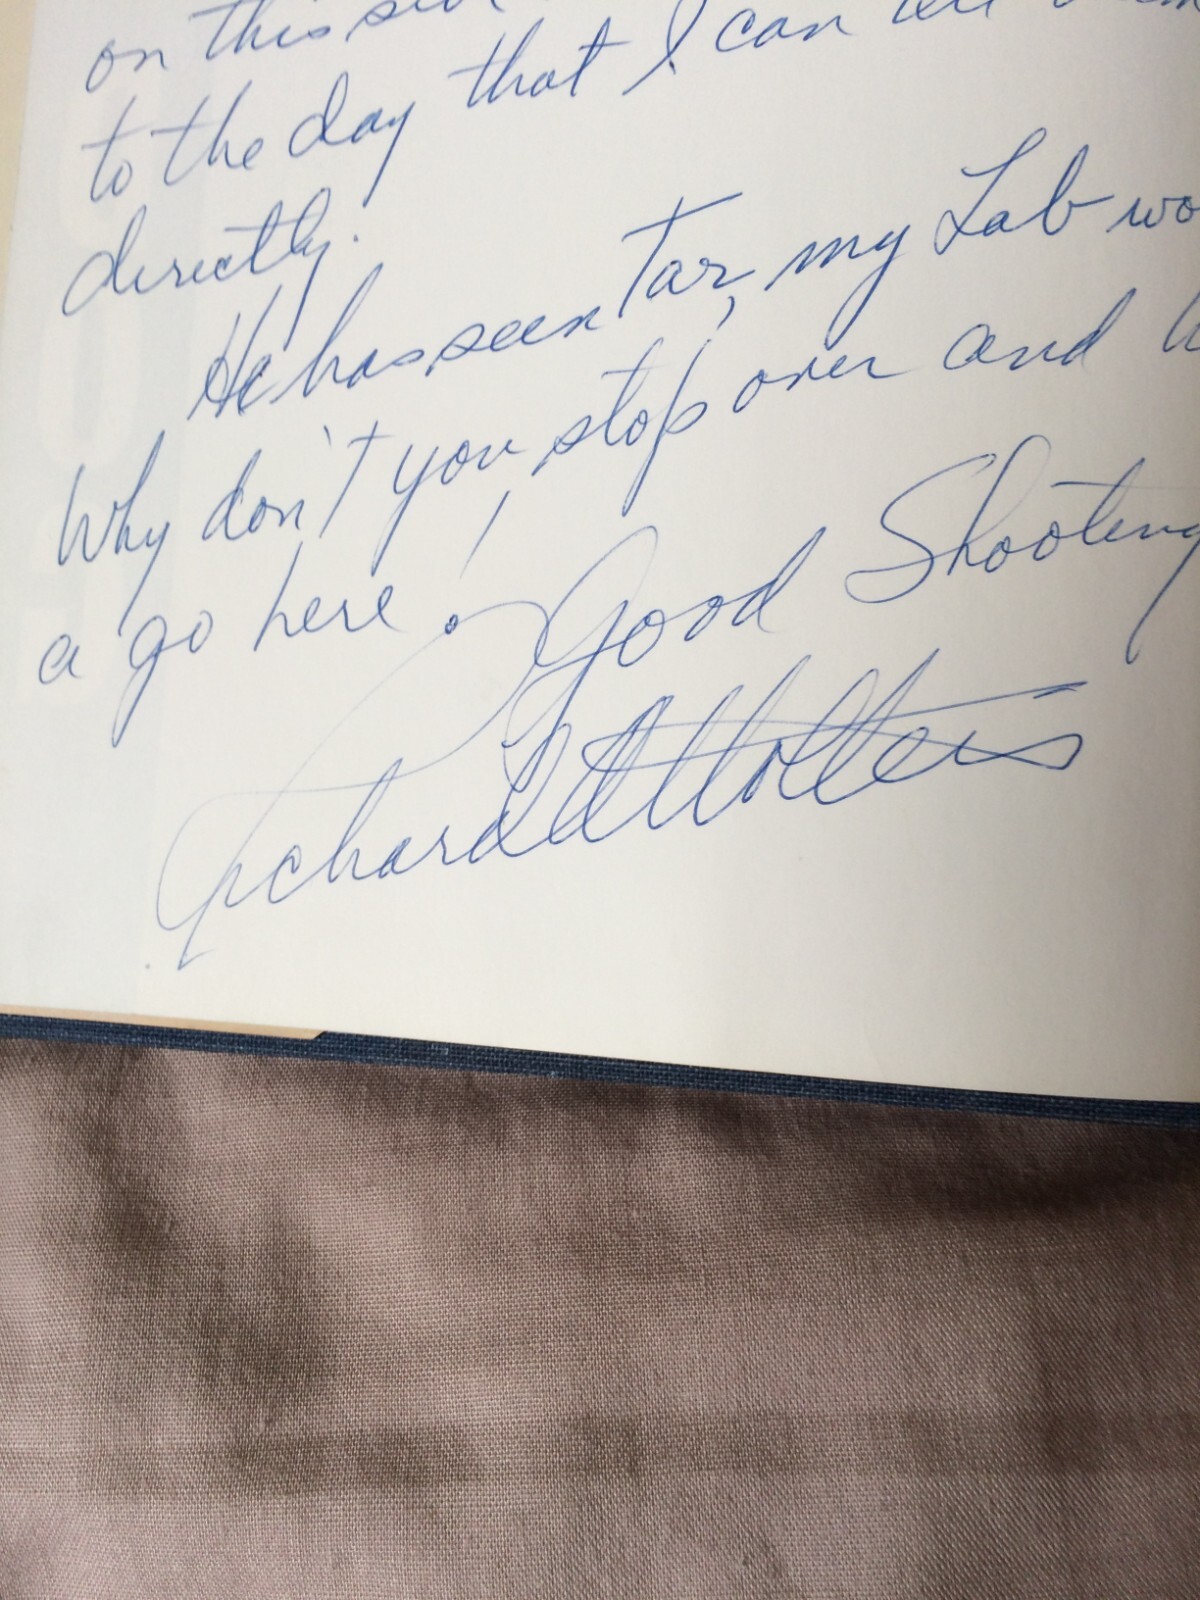 on this
to the day that I can
directly.
He has seen Tar, my Lab
Why don't you stop over and
a go here!
Good Shooting
Richard